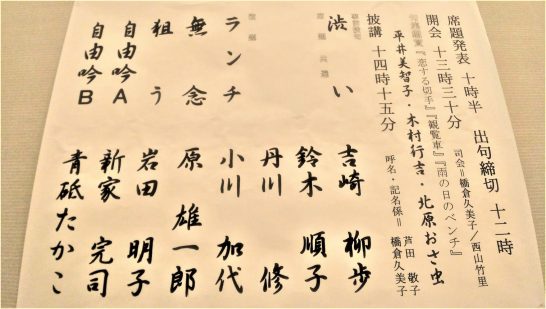 席題発表 十時半 出句締切 十二時
開会 十三時三十分 司会＝橋倉久美子／西山竹里
『恋する切手』『観覧車』『雨の日のベンチ』
平井美智子・木村行吉・北原おさ虫
披講 十四時十五分 呼名・記名係＝ 芦田 敬子 橋倉久美子
渋い 吉崎 柳歩
鈴木 順子
丹川 修
ランチ 小川 加代
無念 原 雄一郎
狙う 岩田 明子
自由吟A 新家 完司
自由吟B 青砥たかこ